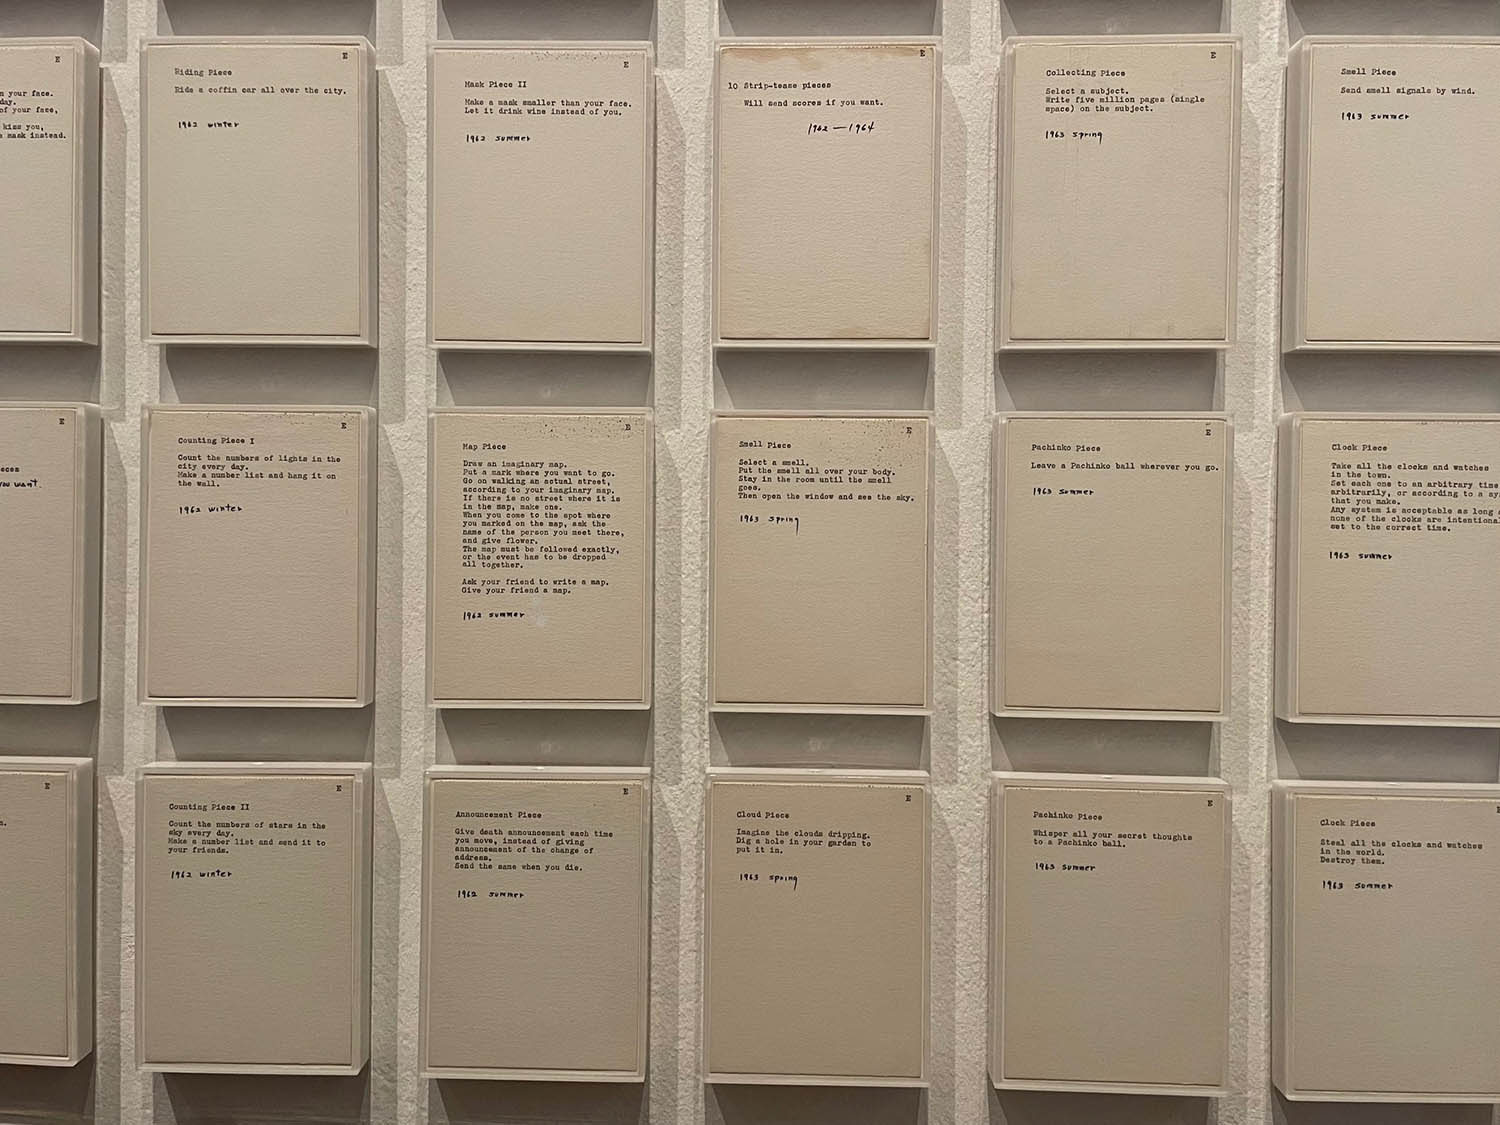 E
n your face.
day.
of your face,
kiss you,
mask instead.
E
Riding Piece
Ride a coffin car all over the city.
1962 winter
E
Mask Piece II
Make a mask smaller than your face.
Let it drink wine instead of you.
1962 summer
E
10 Strip-tease pieces
Will send scores if you want.
1962 — 1964
E
Collecting Piece
Select a subject.
Write five million pages (single
space) on the subject.
1963 spring
Smell Piece
Send smell signals by wind.
1963 summer
E
eces
you want.
E
Counting Piece I
Count the numbers of lights in the
city every day.
Make a number list and hang it on
the wall.
1962 winter
E
Map Piece
Draw an imaginary map.
Put a mark where you want to go.
Go on walking an actual street,
according to your imaginary map.
If there is no street where it is
in the map, make one.
When you come to the spot where
you marked on the map, ask the
name of the person you meet there,
and give flower.
The map must be followed exactly,
or the event has to be dropped
all together.
Ask your friend to write a map.
Give your friend a map.
1962 summer
E
Smell Piece
Select a smell.
Put the smell all over your body.
Stay in the room until the smell
goes.
Then open the window and see the sky.
1963 spring
E
Pachinko Piece
Leave a Pachinko ball wherever you go.
1963 summer
Clock Piece
Take all the clocks and watches
in the town.
Set each one to an arbitrary time
arbitrarily, or according to a sy
that you make.
Any system is acceptable as long
none of the clocks are intentional
set to the correct time.
1963 summer
E
E
Counting Piece II
Count the numbers of stars in the
sky every day.
Make a number list and send it to
your friends.
1962 winter
E
Announcement Piece
Give death announcement each time
you move, instead of giving
announcement of the change of
address.
Send the same when you die.
1962 summer
E
Cloud Piece
Imagine the clouds dripping.
Dig a hole in your garden to
put it in.
1963 spring
E
Pachinko Piece
Whisper all your secret thoughts
to a Pachinko ball.
1963 summer
E
Clock Piece
Steal all the clocks and watches
in the world.
Destroy them.
1963 summer